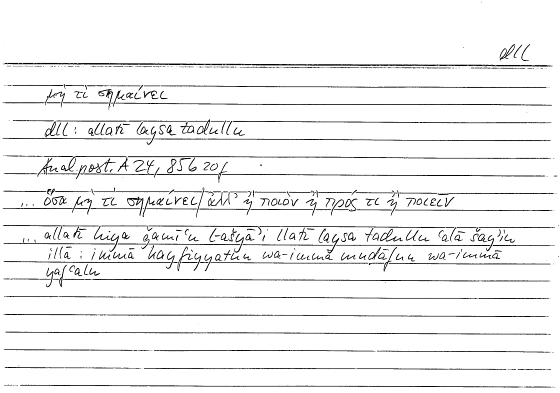 dll
μή τι σημαίνει
dll : allatī laysa tadullu
Anal. post. A 24, 85b 20f
... ὅσα μή τι σημαίνει / ἀλλ' ἢ ποιὸν ἢ πρός τι ἢ ποιεῖν
... allatī hiya ǧamīʿu l-ašyāʾi llatī laysa tadullu ʿalā šayʾin
illā : immā kayfiyyatun wa-immā muḍāfun wa-immā
yafʿalu